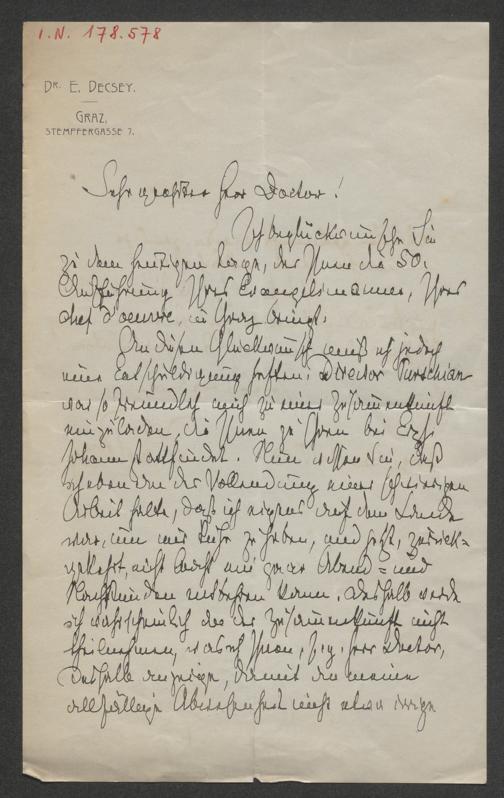 I.N. 178.578
DR. E. DECSEY.
GRAZ,
STEMPFERGASSE 7.
Sehr geehrter Herr Doctor!
Ich beglückwünsche Sie
zu dem heutigen Tage, der Ihnen die 50.
Aufführung Ihres Evangelimannes, Ihres
chef d'oeuvre, in Graz bringt.
An diesen Glückwunsch muß ich jedoch
eine Entschuldigung heften: Director Purschian
war so freundlich mich zu einer Zusammenkunft
einzuladen, die Ihnen zu Ehren bei Erzh.
Johann stattfindet. Nun wissen Sie, daß
ich eben an der Vollendung einer schwierigen
Arbeit halte, daß ich eigens auf dem Lande
war, um mir Ruhe zu haben, und jetzt, zurück=
gekehrt, nicht leicht ein paar Abend= und
Nachtstunden entbehren kann. Deshalb werde
ich wahrscheinlich an der Zusammenkunft nicht
theilnehmen, was ich Ihnen, Herr Doctor,
deshalb anzeige, damit Sie meine
allfällige Abwesenheit nicht etwa irrige